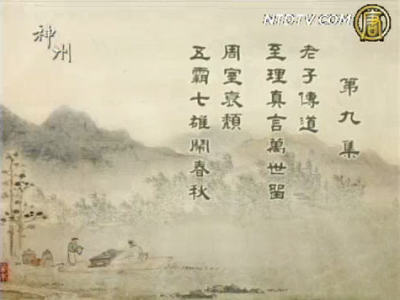 第九集
老子傳道
至理真言萬世留
周室衰頹
五霸七雄鬧春秋
神州
NTDTV.COM
唐